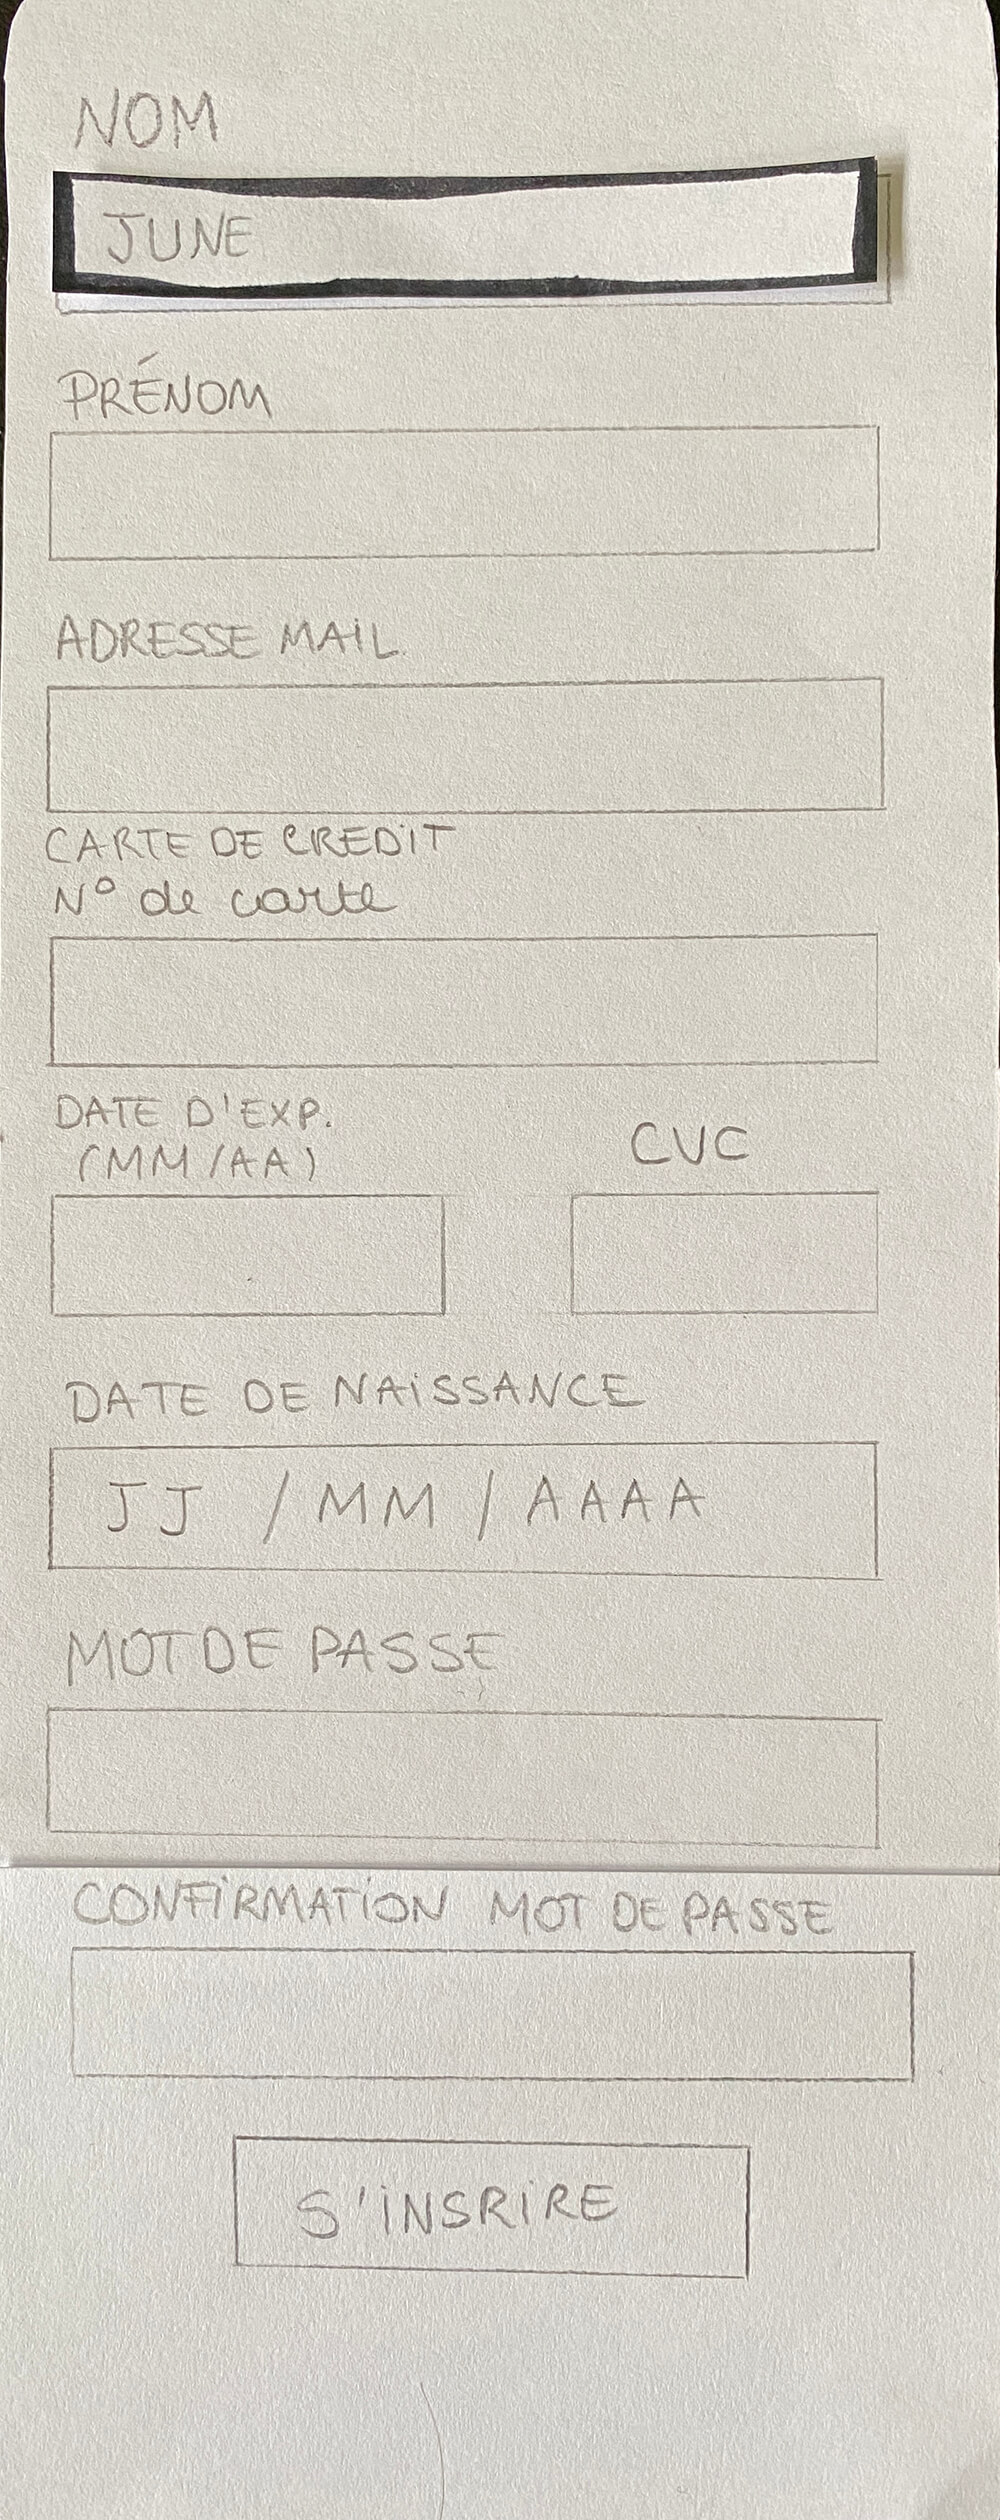 NOM
JUNE
PRÉNOM
ADRESSE MAIL
CARTE DE CREDIT
N° de carte
DATE D'EXP.
(MM/AA)
CVC
DATE DE NAISSANCE
JJ / MM / AAAA
MOT DE PASSE
CONFIRMATION MOT DE PASSE
S'INSRIRE